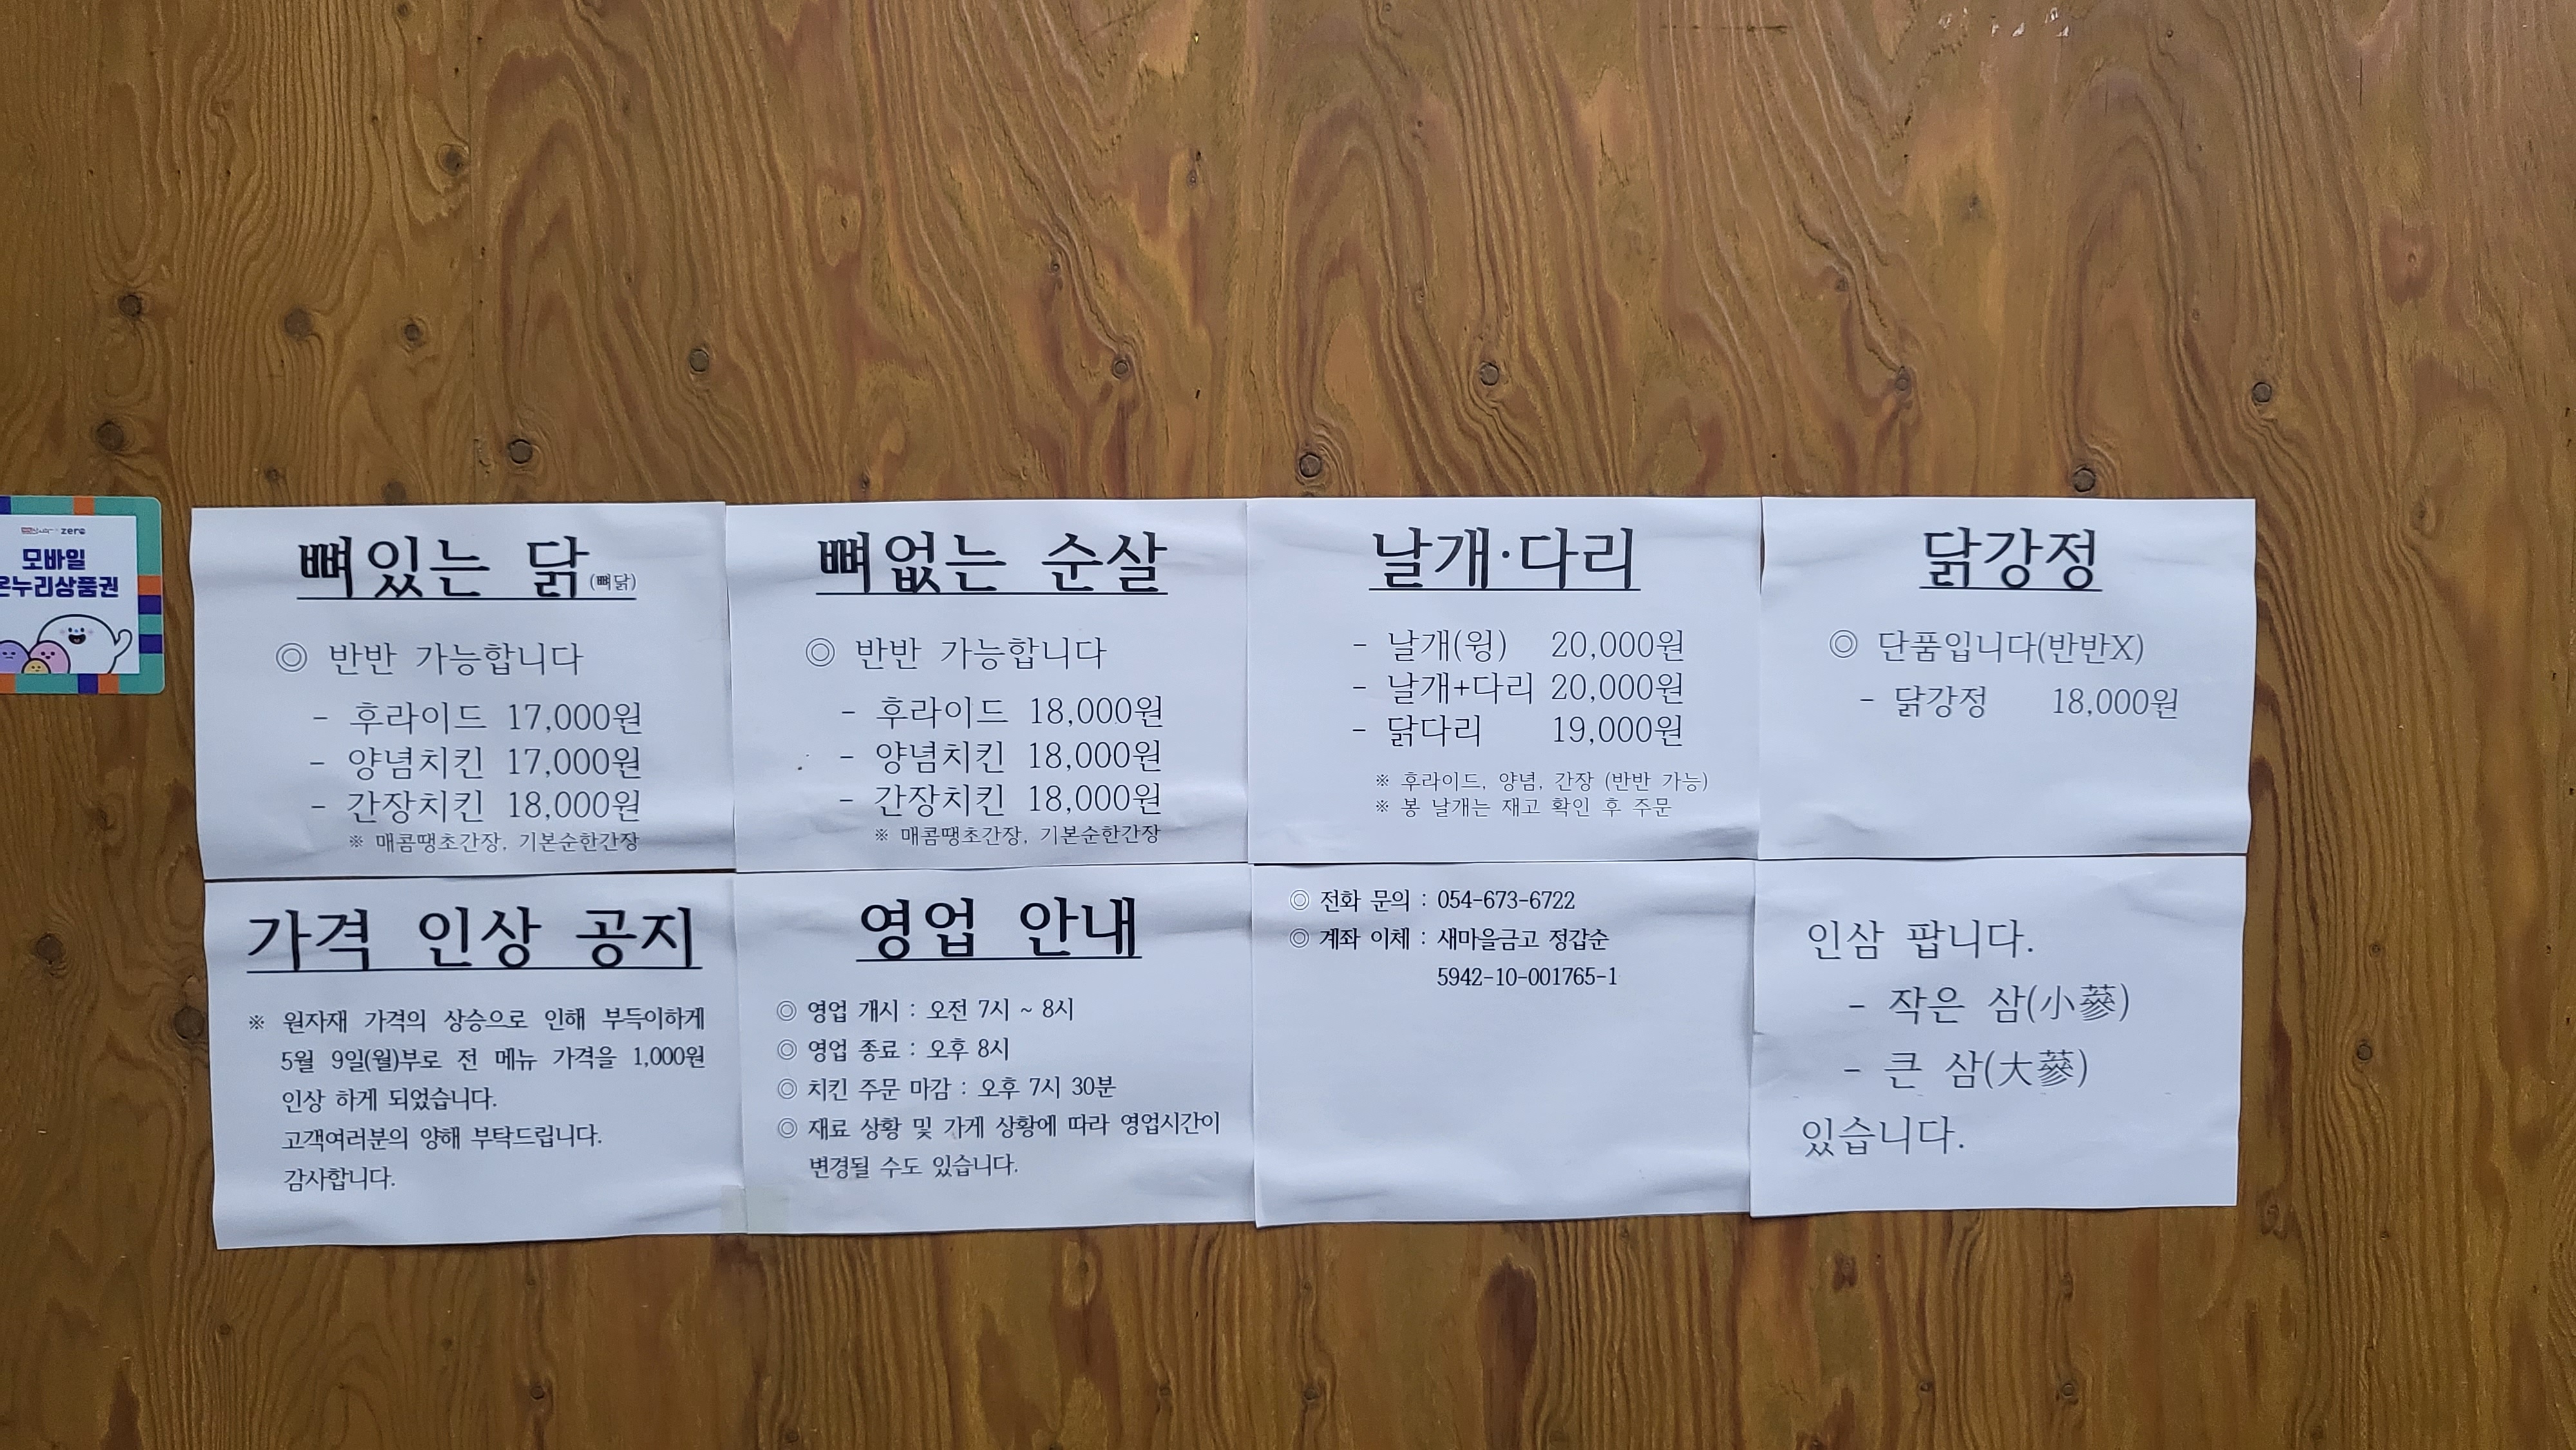 zero
모바일
온누리상품권
뼈있는 닭(뼈닭)
◎ 반반 가능합니다
- 후라이드 17,000원
- 양념치킨 17,000원
- 간장치킨 18,000원
※ 매콤땡초간장, 기본순한간장
뼈없는 순살
◎ 반반 가능합니다
- 후라이드 18,000원
- 양념치킨 18,000원
- 간장치킨 18,000원
※ 매콤땡초간장, 기본순한간장
날개·다리
- 날개(윙) 20,000원
- 날개+다리 20,000원
- 닭다리 19,000원
※ 후라이드, 양념, 간장 (반반 가능)
※ 봉 날개는 재고 확인 후 주문
닭강정
◎ 단품입니다(반반X)
- 닭강정 18,000원
가격 인상 공지
※ 원자재 가격의 상승으로 인해 부득이하게
5월 9일(월)부로 전 메뉴 가격을 1,000원
인상 하게 되었습니다.
고객여러분의 양해 부탁드립니다.
감사합니다.
영업 안내
◎ 영업 개시 : 오전 7시 ~ 8시
◎ 영업 종료 : 오후 8시
◎ 치킨 주문 마감 : 오후 7시 30분
◎ 재료 상황 및 가게 상황에 따라 영업시간이
변경될 수도 있습니다.
◎ 전화 문의 : 054-673-6722
◎ 계좌 이체 : 새마을금고 정갑순
5942-10-001765-1
인삼 팝니다.
- 작은 삼(小蔘)
- 큰 삼(大蔘)
있습니다.